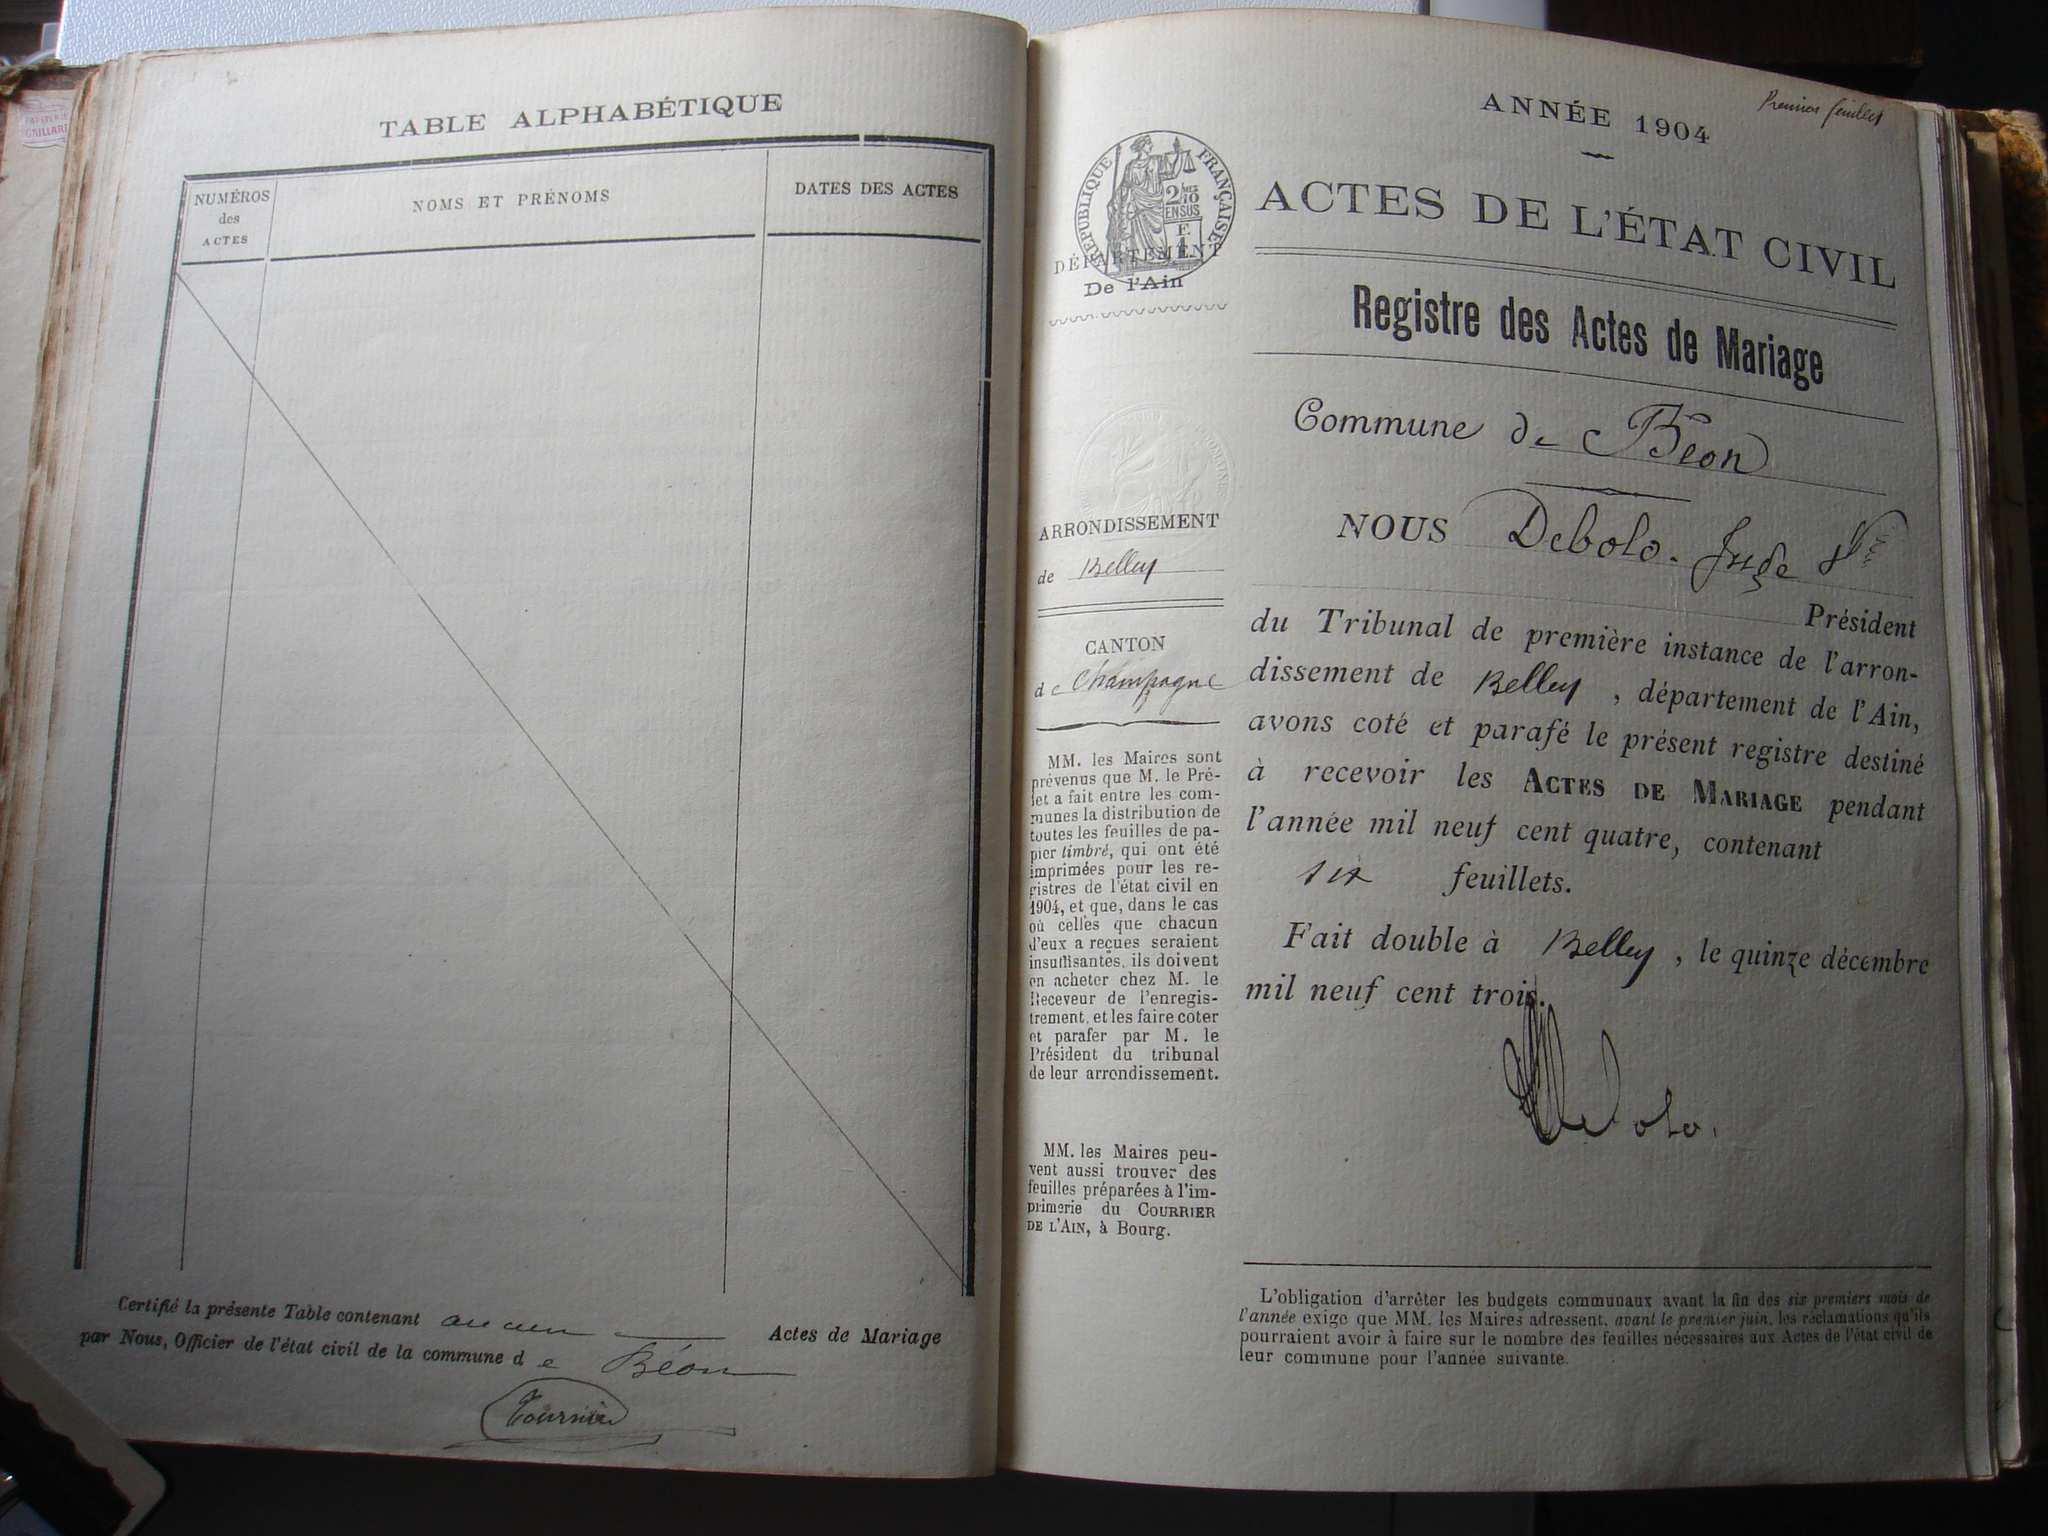 TABLE ALPHABÉTIQUE
NUMÉROS
des
ACTES
NOMS ET PRÉNOMS
DATES DES ACTES
Certifié la présente Table contenant aucun Actes de Mariage
par Nous, Officier de l'état civil de la commune de Béon
GAILLARD
Premier feuillet
ANNÉE 1904
RÉPUBLIQUE FRANÇAISE
2/10
EN SUS
DÉPARTEMENT
De l'Ain
ACTES DE L'ÉTAT CIVIL
Registre des Actes de Mariage
Commune de Béon
ARRONDISSEMENT
de Belley
CANTON
de Champagne
MM. les Maires sont
prévenus que M. le Pré-
fet a fait entre les com-
munes la distribution de
toutes les feuilles de pa-
pier timbré, qui ont été
imprimées pour les re-
gistres de l'état civil en
1904, et que, dans le cas
où celles que chacun
d'eux a reçues seraient
insuffisantes, ils doivent
en acheter chez M. le
Receveur de l'enregis-
trement, et les faire coter
et parafer par M. le
Président du tribunal
de leur arrondissement.
MM. les Maires peu-
vent aussi trouver des
feuilles préparées à l'im-
primerie du COURRIER
DE L'AIN, à Bourg.
NOUS Debolo. Juge
Président
du Tribunal de première instance de l'arron-
dissement de Belley, département de l'Ain,
avons coté et parafé le présent registre destiné
à recevoir les ACTES DE MARIAGE pendant
l'année mil neuf cent quatre, contenant
six feuillets.
Fait double à Belley, le quinze décembre
mil neuf cent trois.
L'obligation d'arrêter les budgets communaux avant la fin des six premiers mois de
l'année exige que MM. les Maires adressent, avant le premier juin, les réclamations qu'ils
pourraient avoir à faire sur le nombre des feuilles nécessaires aux Actes de l'état civil de
leur commune pour l'année suivante.